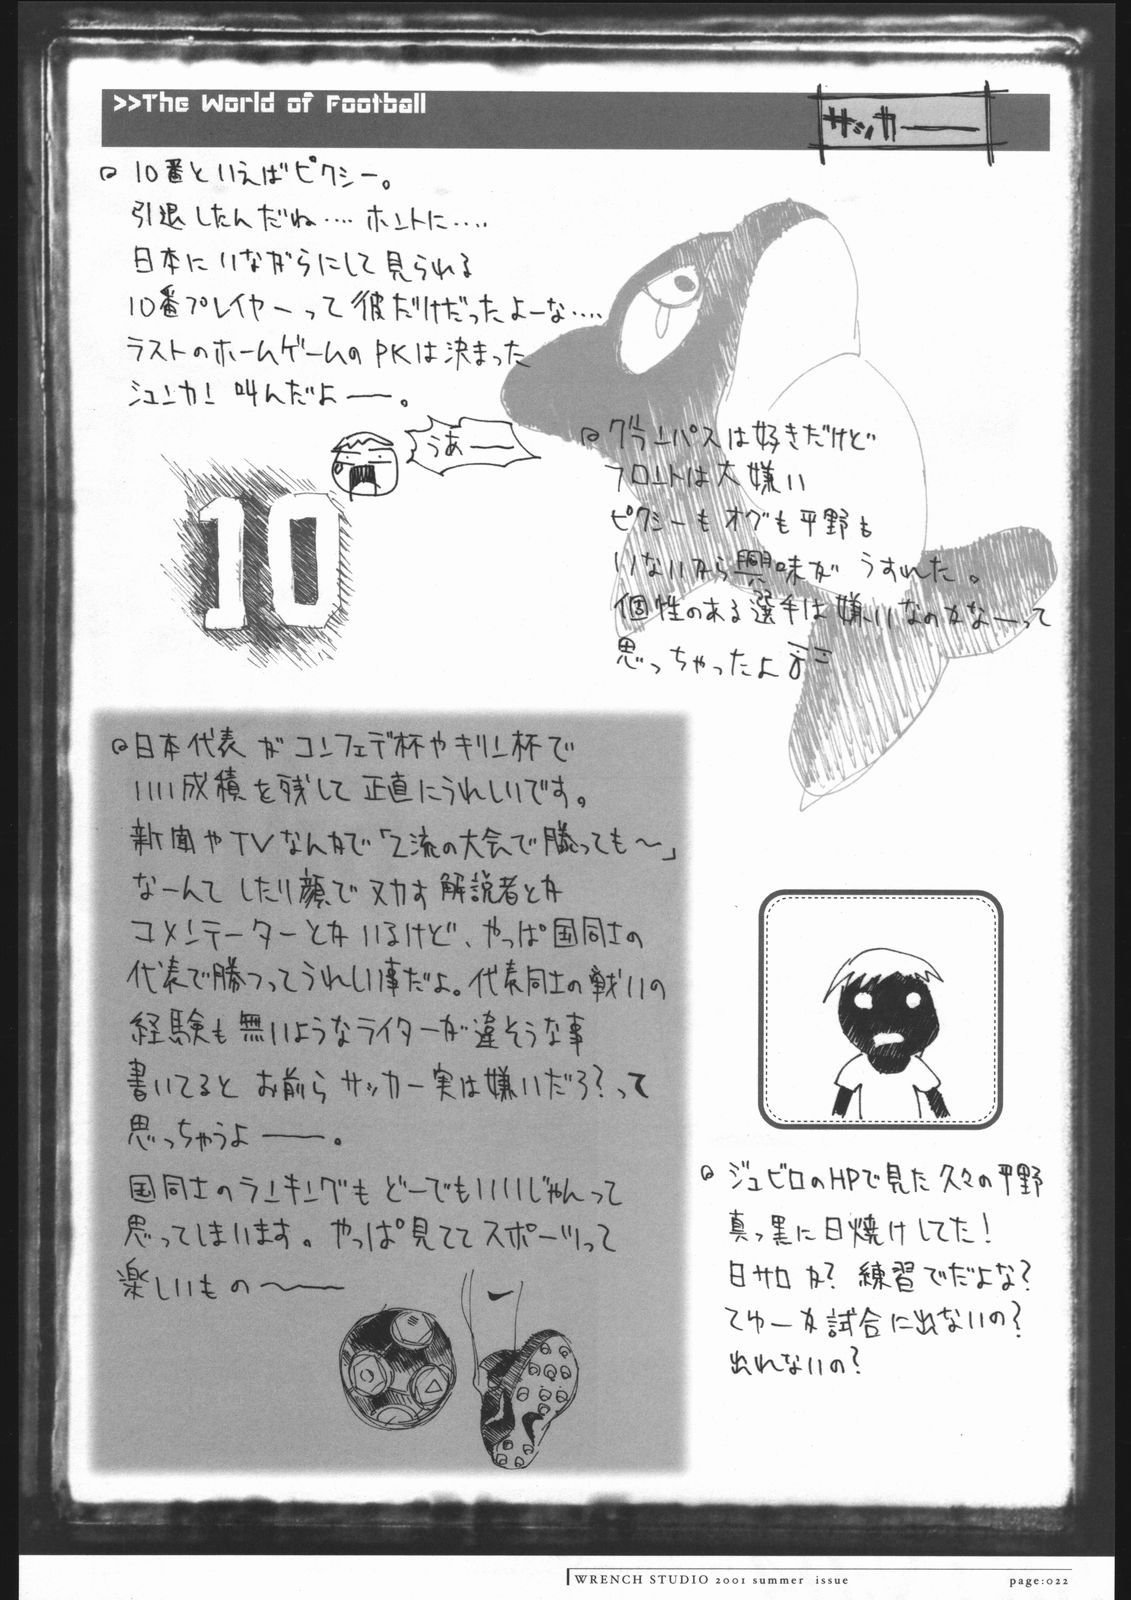 >>The World of Football
サッカー
10番といえばピクシー。
引退したんだね‥‥ ホントに‥‥
日本にいながらにして見られる
10番プレイヤーって彼だけだったよーな‥‥
ラストのホームゲームのPKは決まった
シュンカン 叫んだよ——。
うあ——
10
グランパスは好きだけど
フロントは大嫌い
ピクシーもオグも平野も
いないから興味がうすれた。
個性のある選手は嫌いなのかなーって
思っちゃったよ
日本代表がコンフェデ杯やキリン杯で
いい成績を残して正直にうれしいです。
新聞やTVなんかで「2流の大会で勝っても〜」
なーんてしたり顔でヌカす解説者とか
コメンテーターとかいるけど、やっぱ国同士の
代表で勝つってうれしい事だよ。代表同士の戦いの
経験も無いようなライターが違そうな事
書いてると お前らサッカー実は嫌いだろ?って
思っちゃうよ——。
国同士のランキングもどーでもいいじゃんって
思ってしまいます。やっぱ見ててスポーツって
楽しいもの〜——
ジュビロのHPで見た久々の平野
真っ黒に日焼けしてた!
日サロか?練習でだよな?
てゆーか試合に出ないの?
出れないの?
WRENCH STUDIO 2001 summer issue
page:022